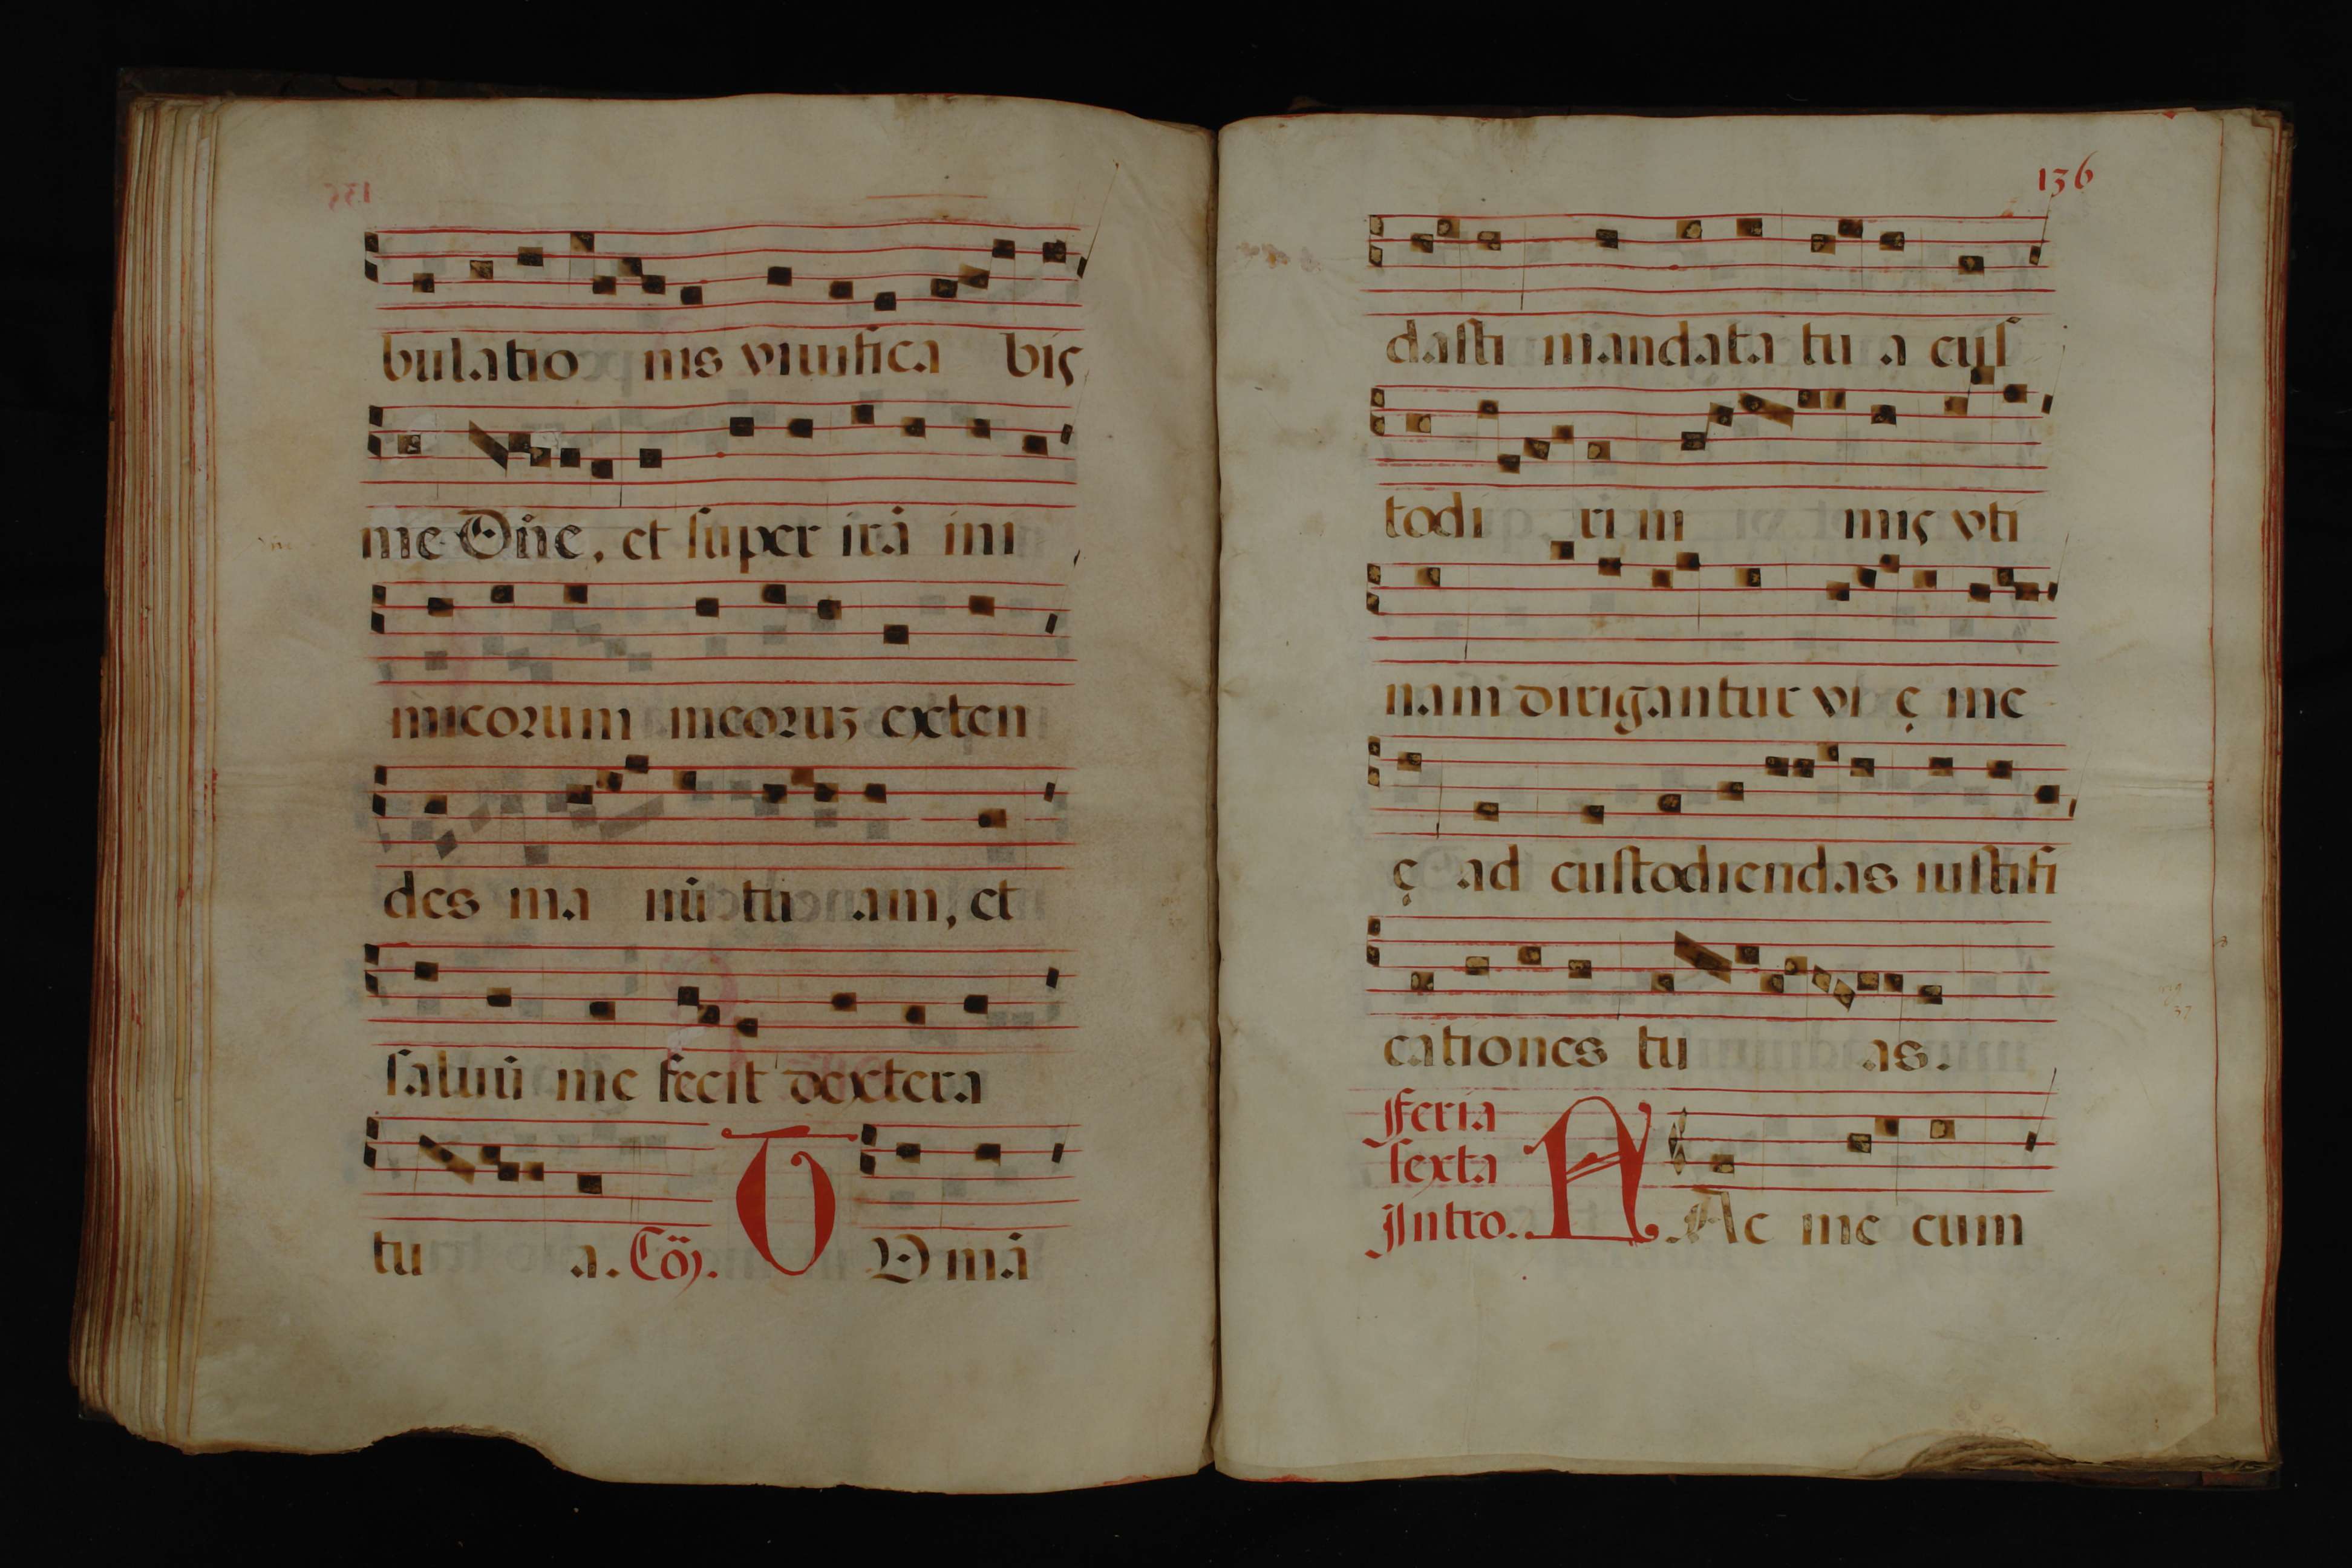 bulatio nis viuifica bis
me Dñe, et super irã ini
micorum meoruʒ exten
des ma nũ tu am, et
saluũ me fecit dextera
tu a. Cõ. T U mã
136
dasti mandata tu a cus
todi ri nimis vti
nam dirigantur vi ę me
ę ad custodiendas iustifi
cationes tu as.
Feria
sexta
Intro. F Ac me cum